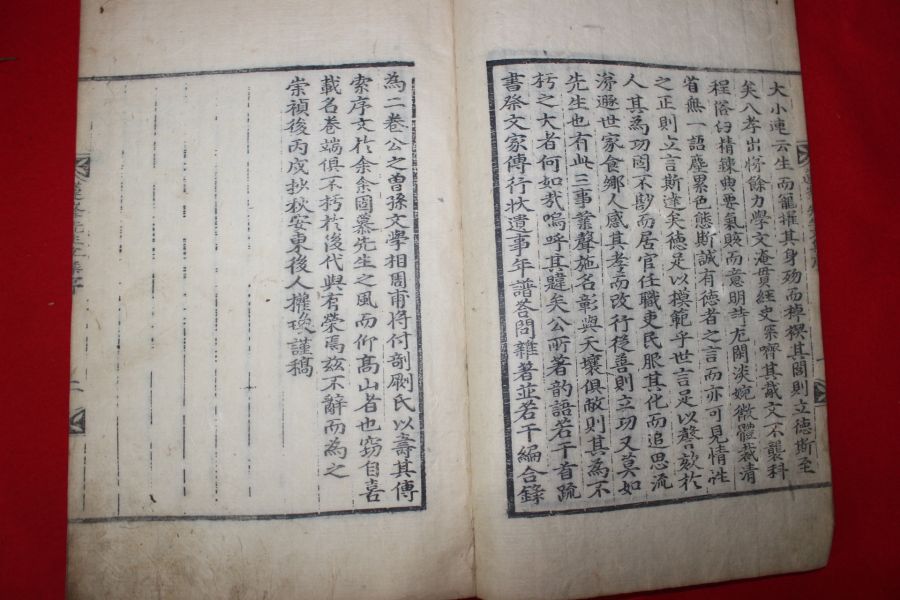 大小連云生而寵擢其身歿而棹楔其閭則立德斯至
矣入孝出悌餘力學文淹貫經史案齊其裁文不襲科
程陷臼精鍊典要氣賅而意明詩尤閑淡婉微體裁清
省無一語塵累色態斯誠有德者之言而亦可見情性
之正則立言斯達矣德足以模範乎世言是以謦欬於
人其為功固不尠而居官任職吏民服其化而追思流
滯遯世家食鄉人感其孝而改行後善則立功又莫如
先生也有此三事業聲施名彰與天壤俱敝則其為不
朽之大者何如哉嗚呼其韙矣公所著韵語若干首疏
書祭文家傳行狀遺事年譜答問雜著並若干編合錄
為二卷公之曾孫文學相周甫將付剞劂氏以壽其傳
索序文於余余固慕先生之風而仰高山者也竊自喜
載名卷端俱不朽於後代與有榮焉玆不辭而為之
崇禎後丙戌抄秋安東後人權瑍謹稿